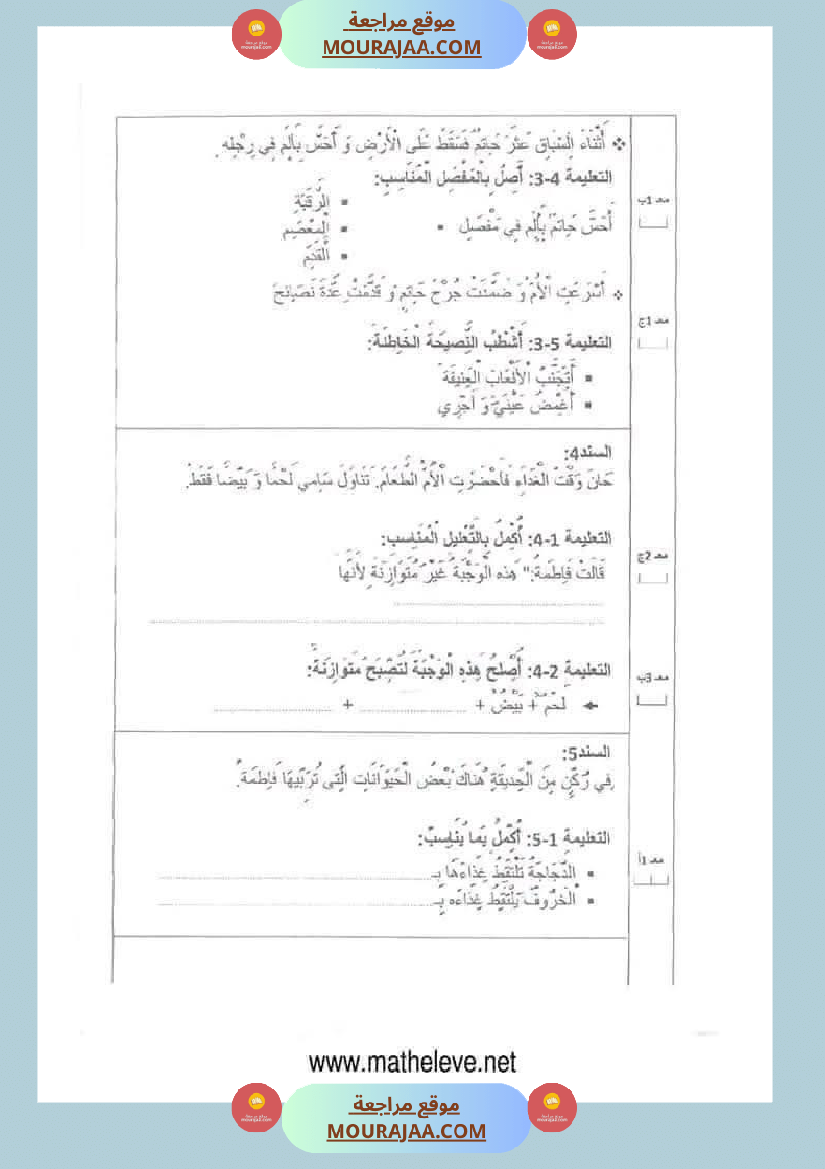 موقع مراجعة
MOURAJAA.COM
❖ أَثْنَاءَ السِّبَاقِ عَثَرَ حَاتِمٌ فَسَقَطَ عَلَى الْأَرْضِ وَ أَحَسَّ بِأَلَمٍ فِي رِجْلِهِ.
التعليمة 4-3: أَصِلُ بِالْمَفْصِلِ الْمُنَاسِبِ:
معـ 1ب
▪ الرَّقَبَةِ
أَحَسَّ حَاتِمٌ بِأَلَمٍ فِي مَفْصِلِ ▪
▪ الْمِعْصَمِ
▪ الْقَدَمِ
❖ أَسْرَعَتِ الْأُمُّ وَ ضَمَّدَتْ جُرْحَ حَاتِمٍ وَ قَدَّمَتْ عِدَّةَ نَصَائِحَ
معـ 1ج
التعليمة 5-3: أَشْطُبُ النَّصِيحَةَ الْخَاطِئَةَ:
▪ أَتَجَنَّبُ الْأَلْعَابَ الْعَنِيفَةَ
▪ أُغْمِضُ عَيْنَيَّ وَ أَجْرِي
السند4:
حَانَ وَقْتُ الْغَدَاءِ فَأَحْضَرَتِ الْأُمُّ الطَّعَامَ. تَنَاوَلَ سَامِي لَحْمًا وَ بَيْضًا فَقَطْ.
التعليمة 1-4: أُكْمِلُ بِالتَّعْلِيلِ الْمُنَاسِبِ:
معـ 2ج
قَالَتْ فَاطِمَةُ:" هَذِهِ الْوَجْبَةُ غَيْرُ مُتَوَازِنَةٍ لِأَنَّهَا
التعليمة 2-4: أُصْلِحُ هَذِهِ الْوَجْبَةَ لِتُصْبِحَ مُتَوَازِنَةً:
معـ 3ب
لَحْمٌ + بَيْضٌ + .................... + ....................
السند5:
فِي رُكْنٍ مِنَ الْحَدِيقَةِ هُنَاكَ بَعْضُ الْحَيَوَانَاتِ الَّتِي تُرَبِّيهَا فَاطِمَةُ.
التعليمة 1-5: أُكْمِلُ بِمَا يُنَاسِبُ:
معـ 1أ
▪ الدَّجَاجَةُ تَلْتَقِطُ غِذَاءَهَا بِـ....................
▪ الْخَرُوفُ يَلْتَقِطُ غِذَاءَه بِـ....................
www.matheleve.net
موقع مراجعة
MOURAJAA.COM